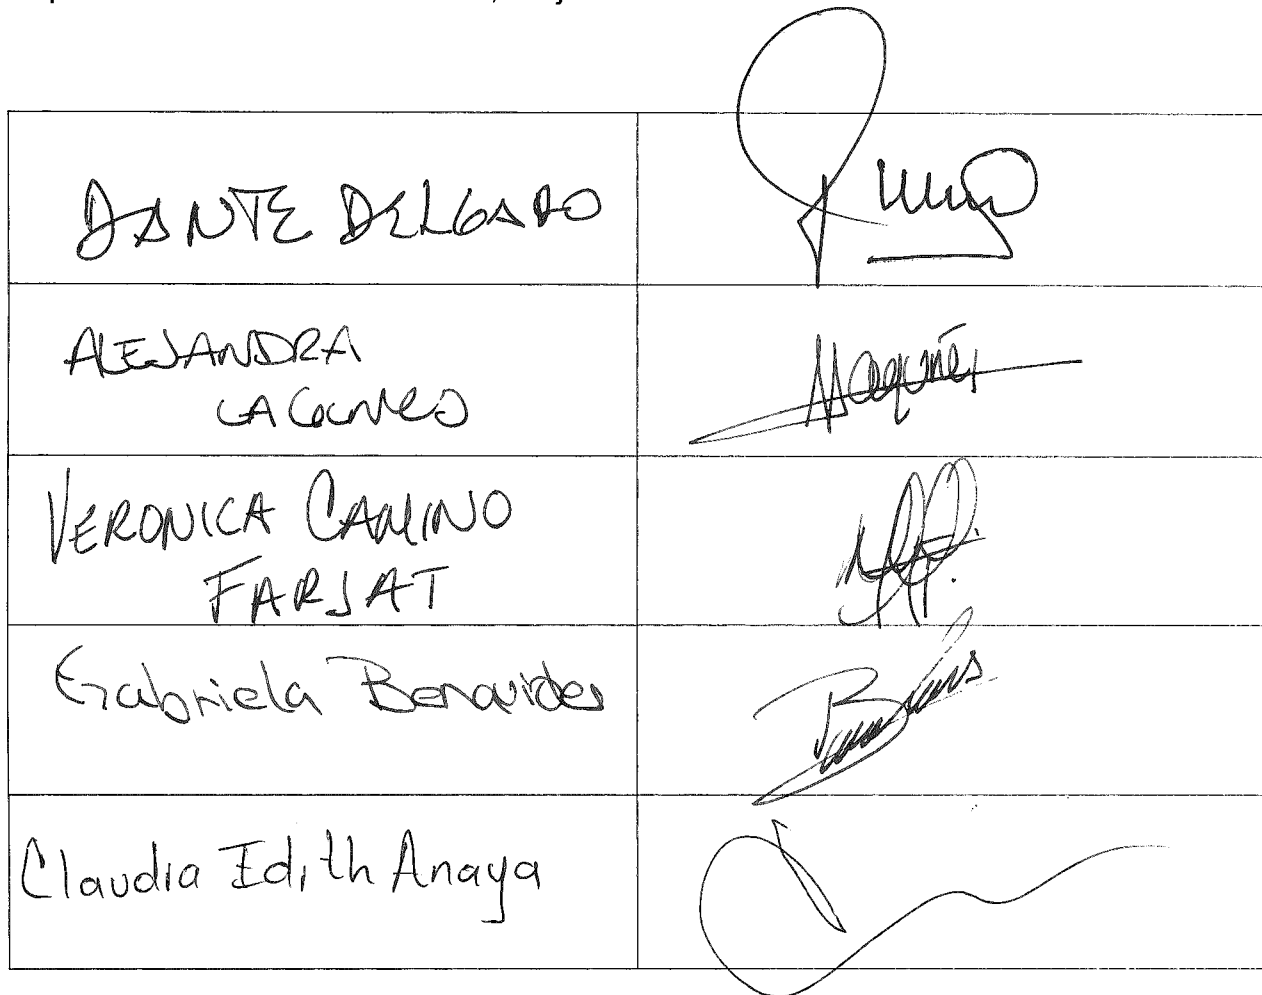 DANTE DELGADO
ALEJANDRA
LAGUNES
VERONICA CAMINO
FARJAT
Gabriela Benavides
Claudia Edith Anaya